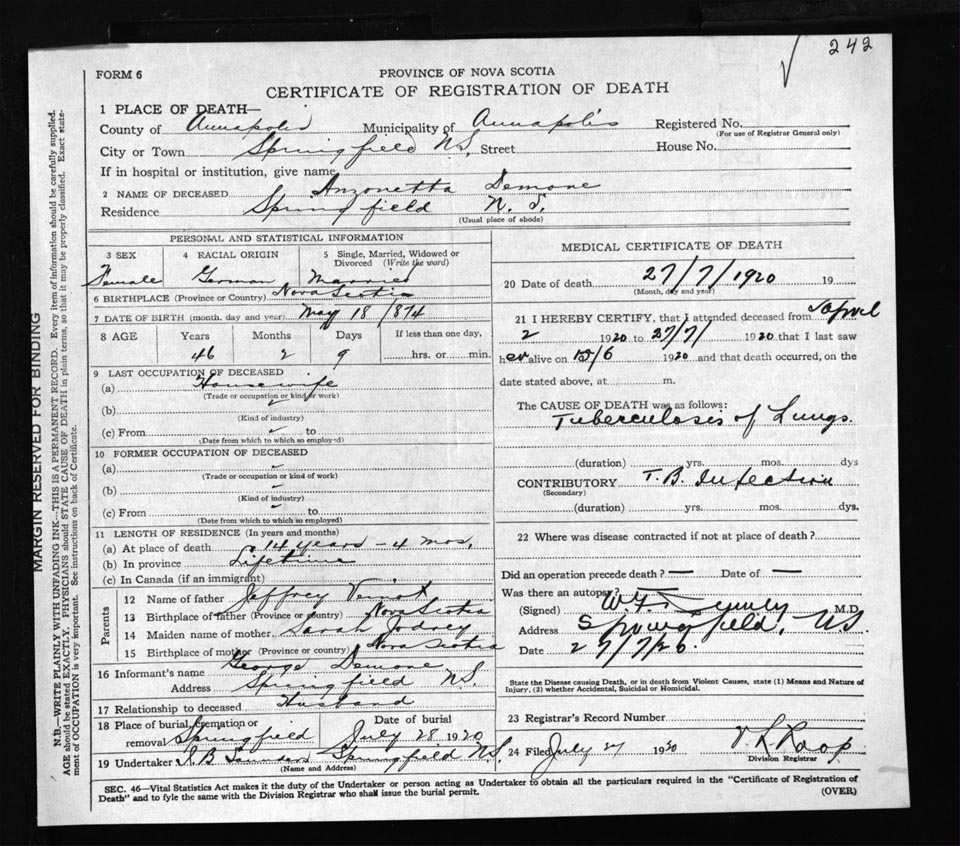 242
FORM 6
PROVINCE OF NOVA SCOTIA
CERTIFICATE OF REGISTRATION OF DEATH
1 PLACE OF DEATH—
County of Annapolis Municipality of Annapolis Registered No.
(For use of Registrar General only)
City or Town Springfield NS, Street House No.
If in hospital or institution, give name
2 NAME OF DECEASED Anzonetta Demone
Residence Springfield N. S.
(Usual place of abode)
PERSONAL AND STATISTICAL INFORMATION
3 SEX 4 RACIAL ORIGIN 5 Single, Married, Widowed or Divorced (Write the word)
Female German Married
6 BIRTHPLACE (Province or Country) Nova Scotia
7 DATE OF BIRTH (month, day and year) May 18 1874
8 AGE Years Months Days If less than one day,
46 2 9 hrs. or min.
9 LAST OCCUPATION OF DECEASED
(a) Housewife
(Trade or occupation or kind of work)
(b)
(Kind of industry)
(c) From to
(Date from which to which so employed)
10 FORMER OCCUPATION OF DECEASED
(a)
(Trade or occupation or kind of work)
(b)
(Kind of industry)
(c) From to
(Date from which to which so employed)
11 LENGTH OF RESIDENCE (In years and months)
(a) At place of death 14 years - 4 mos,
(b) In province Lifetime
(c) In Canada (if an immigrant)
Parents
12 Name of father Jeffrey Veinot
13 Birthplace of father (Province or country) Nova Scotia
14 Maiden name of mother Sarah Jodrey
15 Birthplace of mother (Province or country) Nova Scotia
16 Informant's name George Demone
Address Springfield N.S.
17 Relationship to deceased Husband
18 Place of burial, cremation or removal Springfield Date of burial July 28 1920
19 Undertaker Saunders Springfield N.S.
(Name and Address)
MEDICAL CERTIFICATE OF DEATH
20 Date of death 27/7/1920 19
(Month, day and year)
21 I HEREBY CERTIFY, that I attended deceased from April
2 1920 to 27/7/ 1920 that I last saw
her alive on 15/6 1920 and that death occurred, on the
date stated above, at m.
The CAUSE OF DEATH was as follows:
Tuberculosis of Lungs.
(duration) yrs. mos. dys
CONTRIBUTORY T.B. Infection
(Secondary)
(duration) yrs. mos. dys.
22 Where was disease contracted if not at place of death?
Did an operation precede death? — Date of —
Was there an autopsy?
(Signed) M.D.
Address Springfield, NS.
Date 27/7/20.
State the Disease causing Death, or in death from Violent Causes, state (1) Means and Nature of
Injury, (2) whether Accidental, Suicidal or Homicidal.
23 Registrar's Record Number
24 Filed July 27 1920 Roop
Division Registrar
SEC. 46—Vital Statistics Act makes it the duty of the Undertaker or person acting as Undertaker to obtain all the particulars required in the "Certificate of Registration of
Death" and to fyle the same with the Division Registrar who shall issue the burial permit.
(OVER)
MARGIN RESERVED FOR BINDING
N.B.—WRITE PLAINLY WITH UNFADING INK—THIS IS A PERMANENT RECORD. Every item of information should be carefully supplied.
AGE should be stated EXACTLY. PHYSICIANS should STATE CAUSE OF DEATH in plain terms, so that it may be properly classified. Exact state-
ment of OCCUPATION is very important. See instructions on back of Certificate.